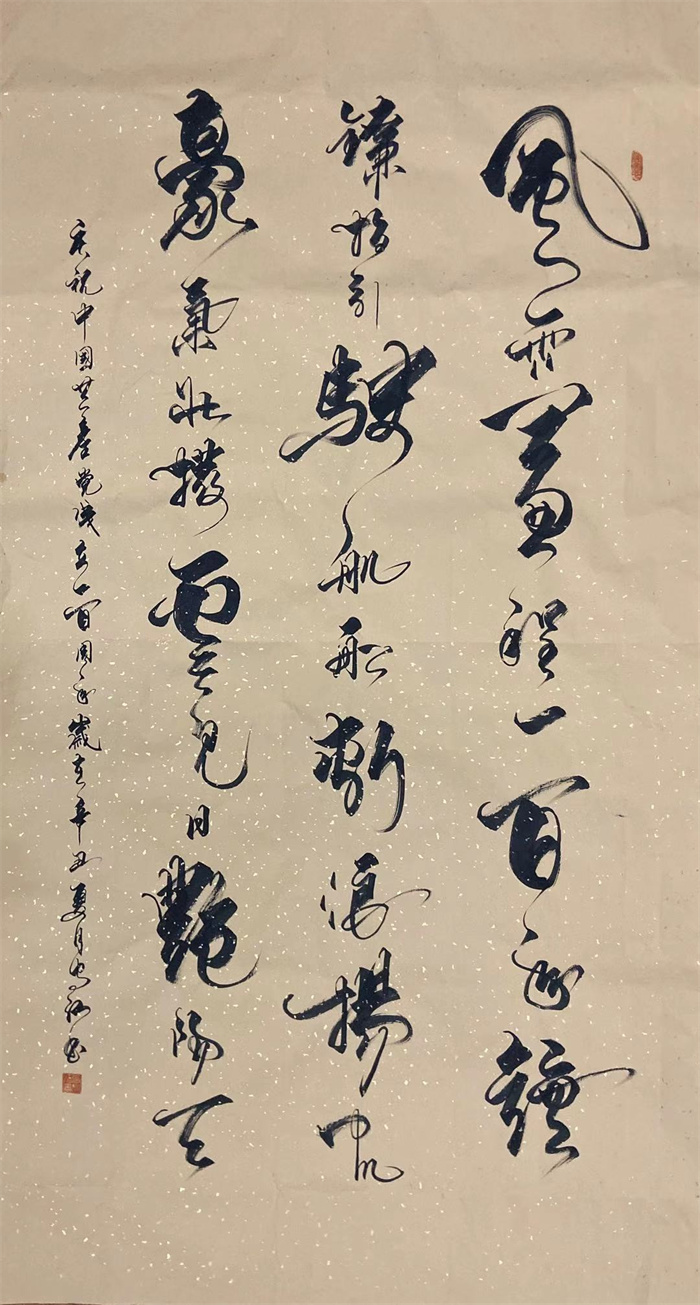 風雨兼程一百年錘
鐮指引駛航船斬浪揚帆
豪氣壯撥雲見日艷陽天
慶祝中國共產党成立一百周年歲在辛丑夏月書